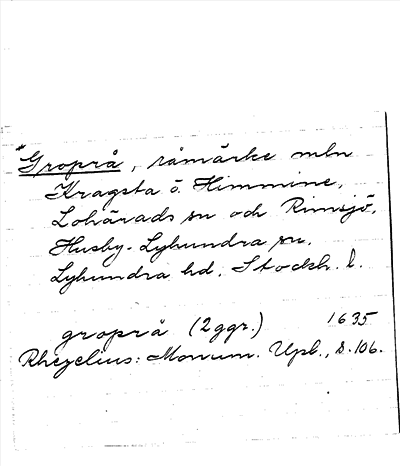 *Groprå, råmärke mln
Kragsta o. Himmine,
Lohärads sn och Rimsjö,
Husby-Lyhundra sn.
Lyhundra hd, Stockh. l.
groprå (2 ggr.) 1635
Rhezelius: Monum. Upl., s. 106.